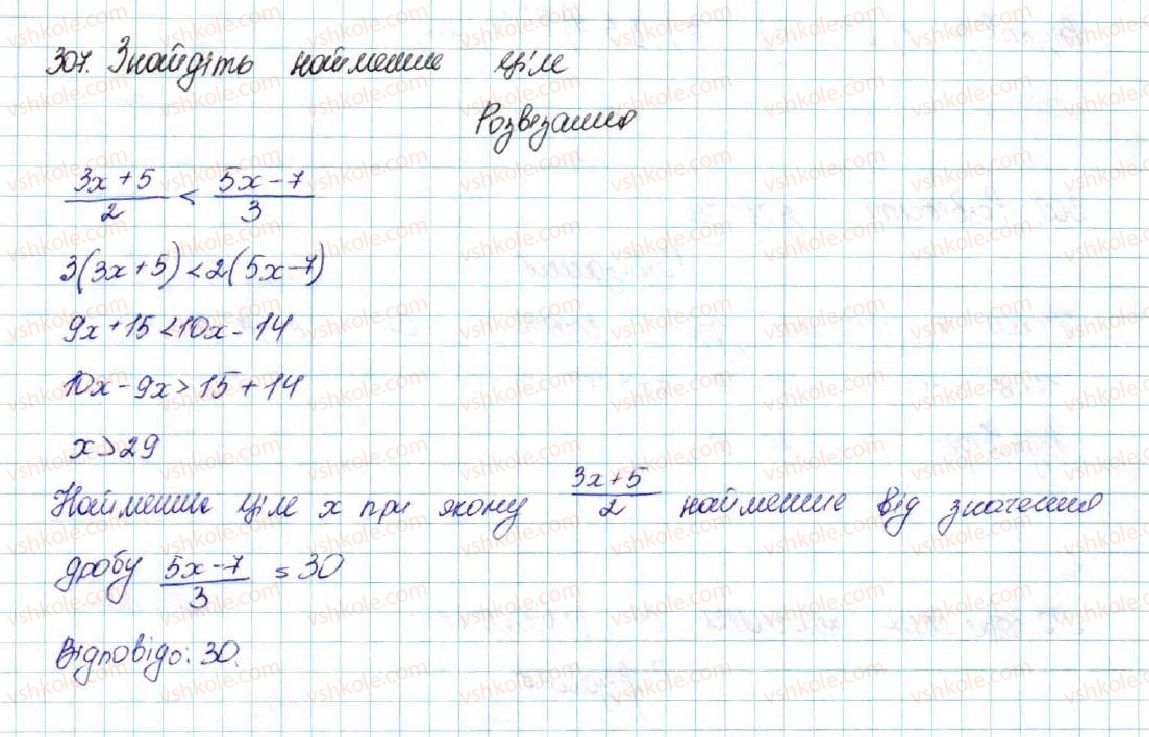 307. Знайдіть найменше ціле
Розвезання
3x+5/2 < 5x-7/3
3(3x+5)<2(5x-7)
9x+15<10x-14
10x-9x>15+14
x>29
Найменше ціле x при якому 3x+5/2 найменше від значення
дробу 5x-7/3 = 30
Відповідь: 30.